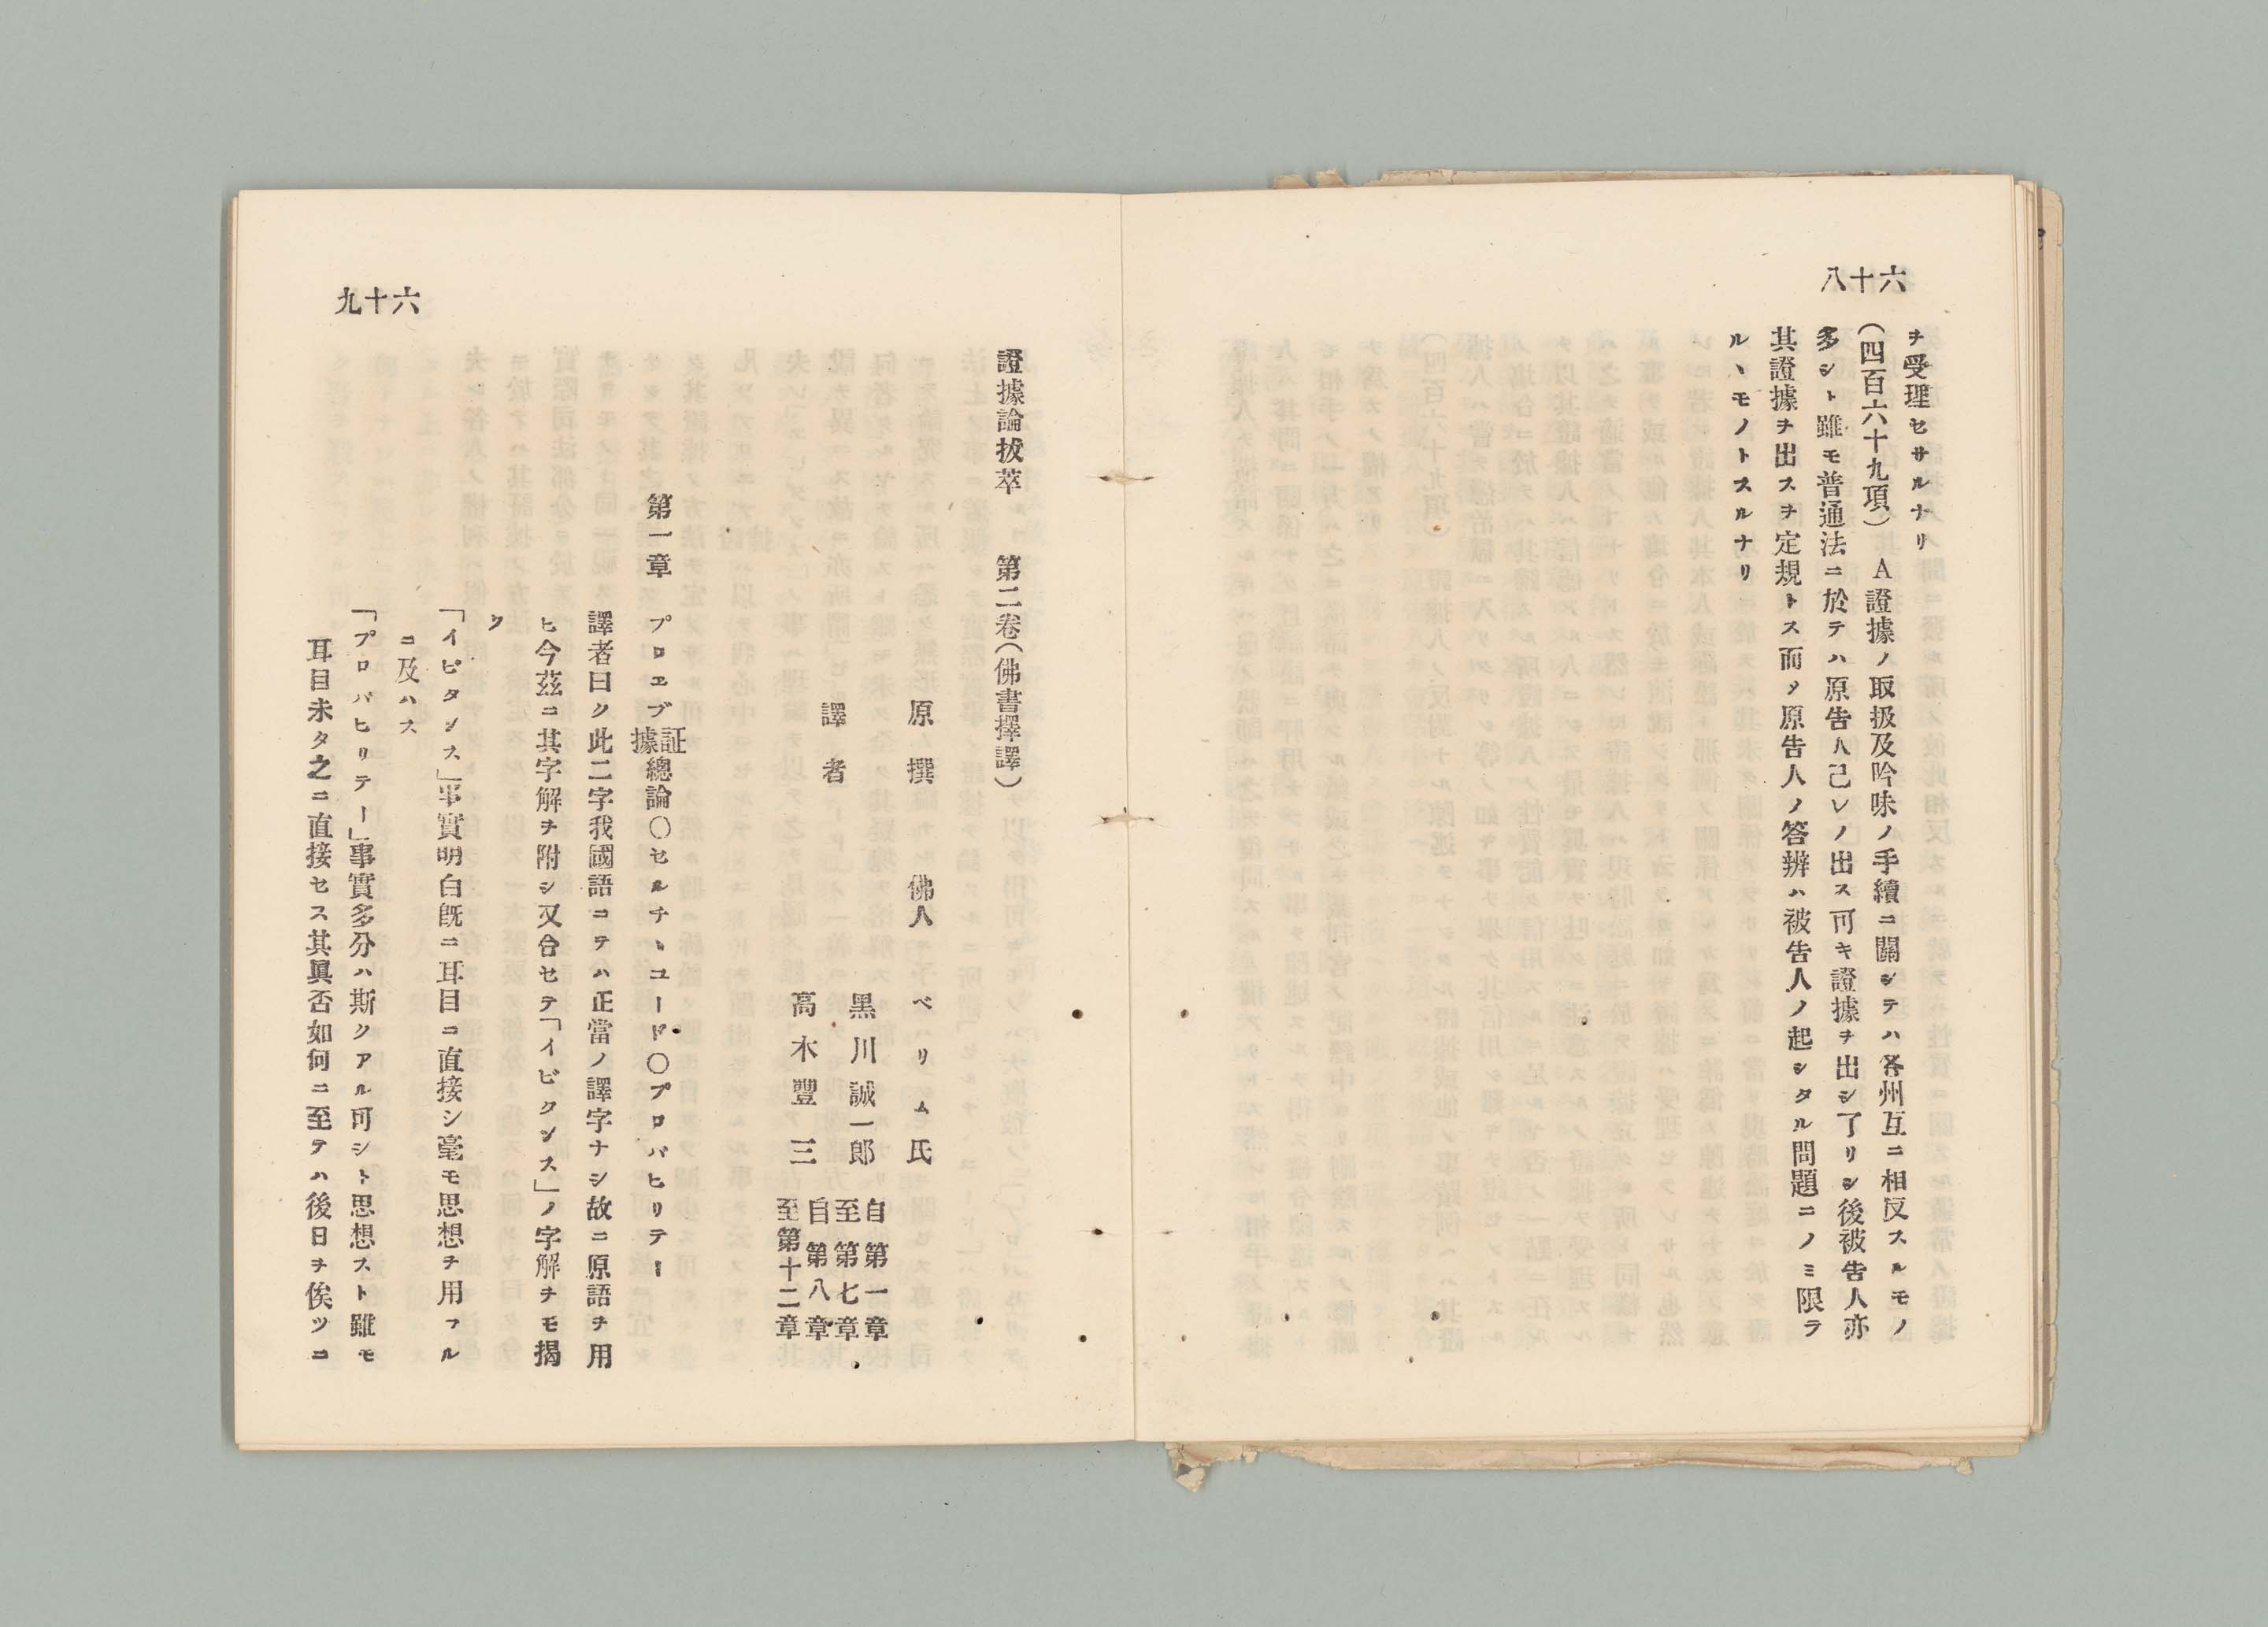 六十八
ヲ受理セサルナリ
(四百六十九項)　A證據ノ取扱及吟味ノ手續ニ關シテハ各州互ニ相反スルモノ
多シト雖モ普通法ニ於テハ原告人己レノ出ス可キ證據ヲ出シ了リシ後被告人亦
其證據ヲ出スヲ定規トス而メ原告人ノ答辨ハ被告人ノ起シタル問題ニノミ限ラ
ルヽモノトスルナリ
六十九
證據論拔萃　第二卷(佛書擇譯)
原撰　佛人　ベリム氏
譯者
黑川誠一郎　自第一章至第七章
高木豐三　自第八章至第十二章
第一章　プロエブ証據總論〇セルチヽユード〇プロバヒリテー
譯者曰ク此二字我國語ニテハ正當ノ譯字ナシ故ニ原語ヲ用
ヒ今茲ニ其字解ヲ附シ又合セテ「イビタンス」ノ字解ヲモ揭
ク
「イビタンス」事實明白既ニ耳目ニ直接シ毫モ思想ヲ用フル
ニ及ハス
「プロバヒリテー」事實多分ハ斯クアル可シト思想スト雖モ
耳目未タ之ニ直接セス其眞否如何ニ至テハ後日ヲ俟ツコ